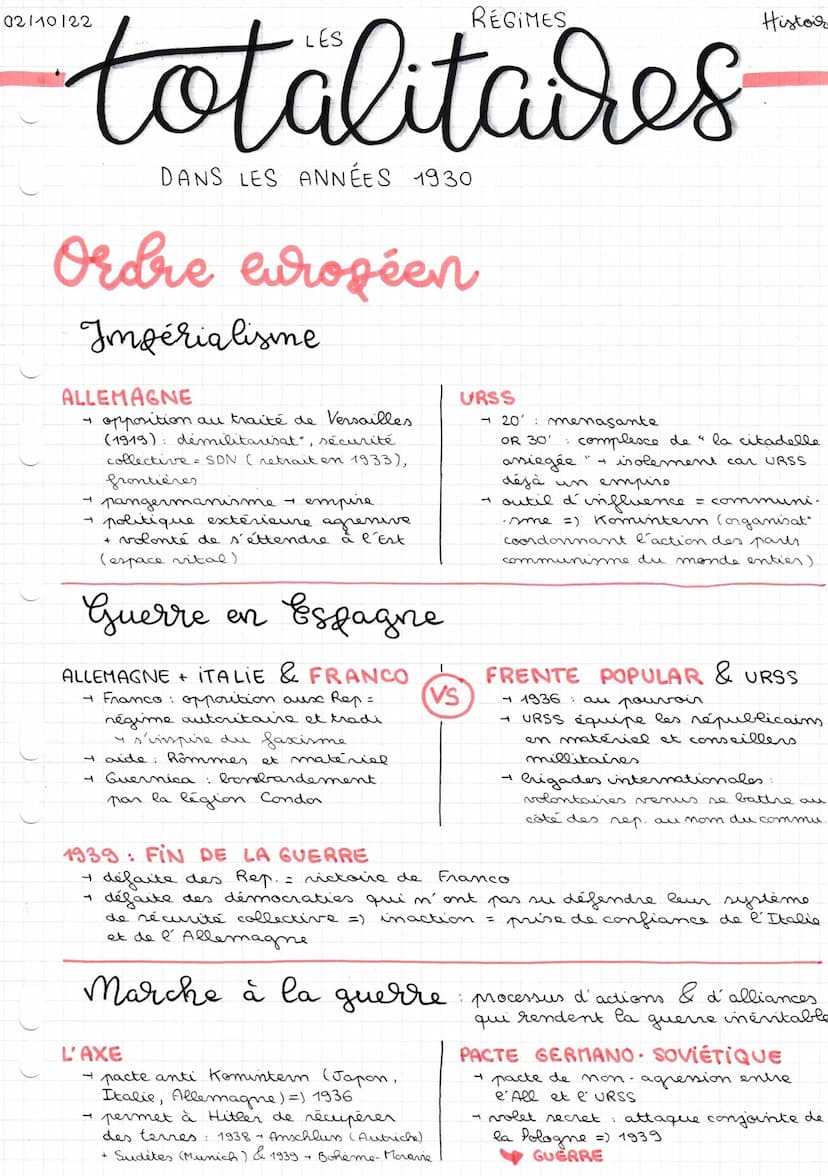 02/10/22
RÉGIMES
Histoir
LES
totalitaires
DANS LES ANNÉES 1930
Ordre européen
Impérialisme
ALLEMAGNE
→ opposition au traité de Versailles
(1919) : démilitarisat°, sécurité
collective = SDN ( retrait en 1933),
frontières
→ pangermanisme → empire
→ politique extérieure agressive
+ volonté de s'éttendre à l'Est
(espace vital)
URSS
→ 20' : menaçante
OR 30' : complexe de " la citadelle
assiegée " → isolement car URSS
déjà un empire
→ outil d'influence = communi-
-sme => Komintern (organisat°
coordonnant l'action des partis
communisme du monde entier)
Guerre en Espagne
ALLEMAGNE + ITALIE & FRANCO
→ Franco : opposition aux Rep =
régime autoritaire et tradi
→ s'inspire du faxisme
→ aide : Hommes et matériel
→ Guernica : bombardement
par la légion Condor
VS
FRENTE POPULAR & URSS
→ 1936 : au pouvoir
→ URSS équipe les républicains
en matériel et conseillers
millitaires
→ brigades internationales :
volontaires venus se battre au
côté des rep. au nom du commu.
1939 : FIN DE LA GUERRE
→ défaite des Rep. = victoire de Franco
→ défaite des démocraties qui n'ont pas su défendre leur système
de sécurité collective => inaction = prise de confiance de l'Italie
et de l'Allemagne
Marche à la guerre : processus d'actions & d'alliances
qui rendent la guerre inévitable
L'AXE
→ pacte anti Komintern (Japon,
Italie, Allemagne) => 1936
→ permet à Hitler de récupérer
des terres : 1938 → Anschluss (Autriche)
+ Sudètes (Munich) & 1939 → Bohème-Moravie
PACTE GERMANO-SOVIÉTIQUE
→ pacte de non-agression entre
l'All et l'URSS
→ volet secret : attaque conjointe de
la Pologne => 1939
GUERRE